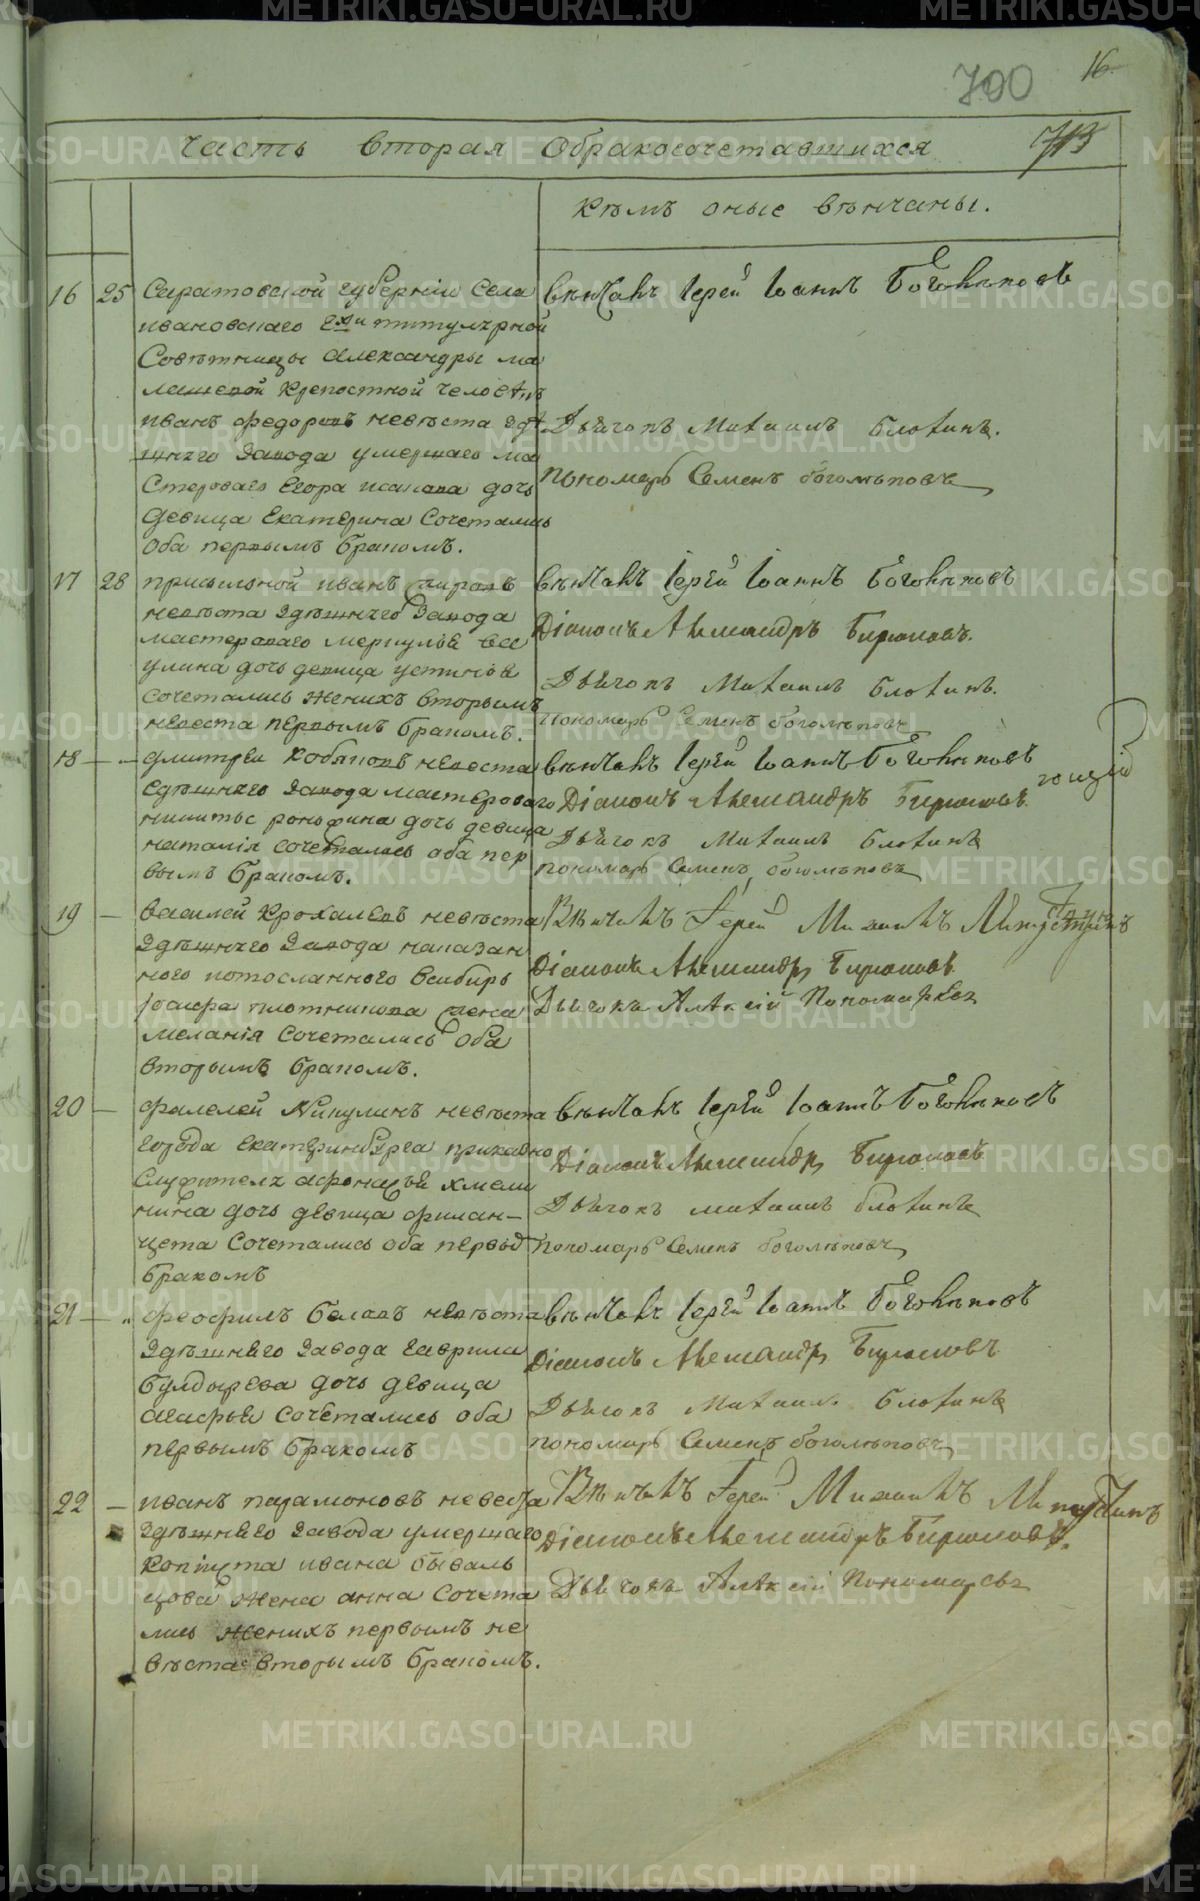 16
700
Часть вторая Обракосочетавшихся
713
Кѣмъ оные вѣнчаны.
16 25 Саратовской губернiи села
ивановскаго титулярной
Совѣтницы Александры ма
лышевой крепостной человѣкъ
иванъ федоровъ невѣста здѣ
шняго завода умершаго ма
стероваго Егора исакова дочь
девица Екатерина Сочетались
оба первымъ бракомъ.
вѣнчалъ Iерей Iоаннъ Боголѣповъ
Дьячокъ Михаилъ Блохинъ.
пономарь Семенъ боголѣповъ
17 28 присыльной иванъ
невѣста здѣшняго завода
мастероваго меркулья
улина дочь девица устинья
сочетались женихъ вторымъ
невеста первымъ бракомъ.
вѣнчалъ Iерей Iоаннъ Боголѣповъ
Дiаконъ Александръ Бирюковъ.
Дьячокъ Михаилъ Блохинъ.
пономарь Семенъ боголѣповъ
18 — дмитрей кобяковъ невеста
здѣшняго завода мастероваго
никиты дочь девица
наталiя сочетались оба пер
вымъ бракомъ.
вѣнчалъ Iерей Iоаннъ Боголѣповъ
Дiаконъ Александръ Бирюковъ.
Дьячокъ Михаилъ Блохинъ
пономарь Семенъ боголѣповъ
19 — василей Крохалевъ невѣста
здѣшняго завода наказан
ного и посланного в сибирь
плотникова жена
меланiя сочетались оба
вторымъ бракомъ.
Вѣнчалъ Iерей Михаилъ
Дiаконъ Александръ Бирюковъ
Дьячокъ Алексiй Пономаревъ
20 — фалелей Никулинъ невѣста
города екатеринбурга приказно
служителя афонасья хмели
нина дочь девица филан-
цета сочетались оба первы
бракомъ
вѣнчалъ Iерей Iоаннъ Боголѣповъ
Дiаконъ Александръ Бирюковъ
Дьячокъ михаилъ блохинъ
пономарь Семенъ боголѣповъ
21 — феофилъ белавъ невѣста
здѣшнего завода гаврила
булдырева дочь девица
агафья сочетались оба
первымъ бракомъ
вѣнчалъ Iерей Iоаннъ Боголѣповъ
Дiаконъ Александръ Бирюковъ
Дьячокъ Михаилъ Блохинъ
пономарь Семенъ боголѣповъ
22 — иванъ парамоновъ невеста
здѣшнего завода умершаго
копiиста ивана бываль
цова жена анна сочета
лись женихъ первымъ не
вѣста вторымъ бракомъ.
Вѣнчалъ Iерей Михаилъ
Дiаконъ Александръ Бирюковъ.
Дьячокъ Алексiй Пономаревъ
METRIKI.GASO-URAL.RU